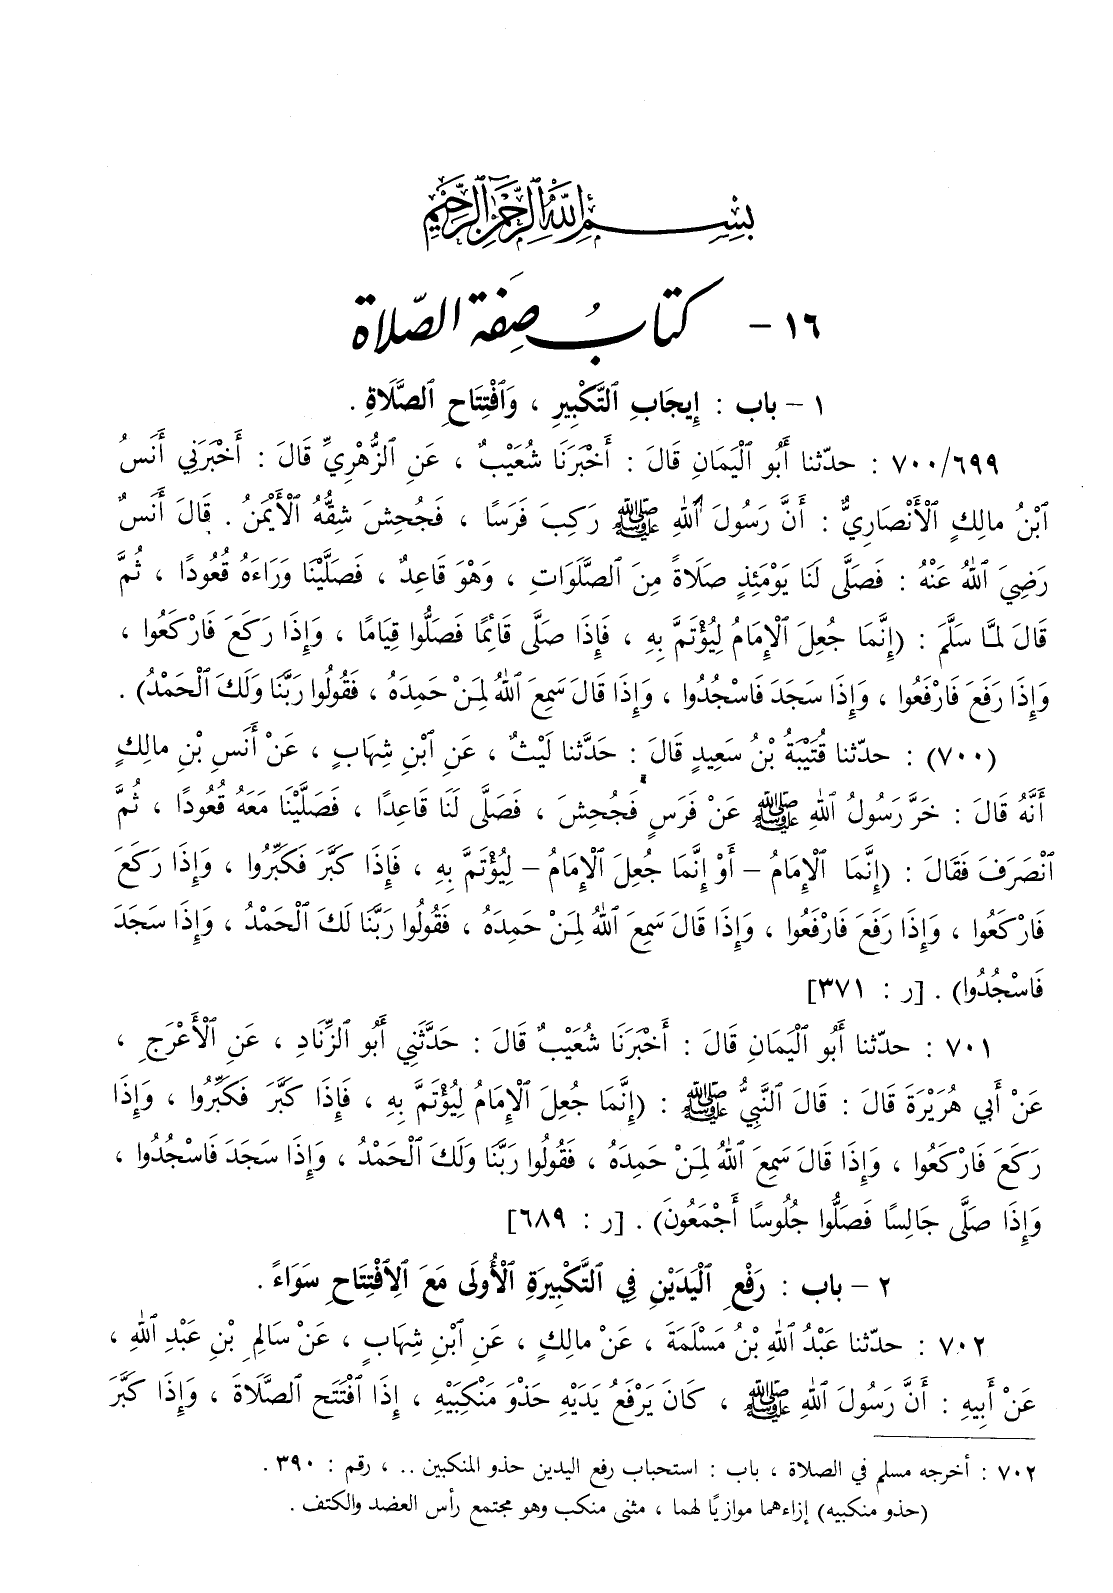 بِسْمِ ٱللَّهِ ٱلرَّحْمَٰنِ ٱلرَّحِيمِ
١٦ - كتابُ صِفَة الصّلاة
١ - باب : إِيجَابِ ٱلتَّكْبِيرِ ، وَٱفْتِتَاحِ ٱلصَّلَاةِ .
٧٠٠/٦٩٩ : حدّثنا أَبُو ٱلْيَمَانِ قَالَ : أَخْبَرَنَا شُعَيْبٌ ، عَنِ ٱلزُّهْرِيِّ قَالَ : أَخْبَرَنِي أَنَسُ
ٱبْنُ مالِكٍ ٱلْأَنْصَارِيُّ : أَنَّ رَسُولَ ٱللهِ ﷺ رَكِبَ فَرَسًا ، فَجُحِشَ شِقُّهُ ٱلْأَيْمَنُ . قَالَ أَنَسٌ
رَضِيَ ٱللهُ عَنْهُ : فَصَلَّى لَنَا يَوْمَئِذٍ صَلَاةً مِنَ ٱلصَّلَوَاتِ ، وَهْوَ قَاعِدٌ ، فَصَلَّيْنَا وَرَاءَهُ قُعُودًا ، ثُمَّ
قَالَ لمَّا سَلَّمَ : (إِنَّمَا جُعِلَ ٱلْإِمَامُ لِيُؤْتَمَّ بِهِ ، فَإِذَا صَلَّى قَائِمًا فَصَلُّوا قِيَامًا ، وَإِذَا رَكَعَ فَارْكَعُوا ،
وَإِذَا رَفَعَ فَارْفَعُوا ، وَإِذَا سَجَدَ فَاسْجُدُوا ، وَإِذَا قَالَ سَمِعَ ٱللهُ لِمَنْ حَمِدَهُ ، فَقُولُوا رَبَّنَا وَلَكَ ٱلْحَمْدُ) .
(٧٠٠) : حدّثنا قُتَيْبَةُ بْنُ سَعِيدٍ قَالَ : حَدَّثنا لَيْثٌ ، عَنِ ٱبْنِ شِهَابٍ ، عَنْ أَنَسِ بْنِ مالِكٍ
أَنَّهُ قَالَ : خَرَّ رَسُولُ ٱللهِ ﷺ عَنْ فَرَسٍ فَجُحِشَ ، فَصَلَّى لَنَا قَاعِدًا ، فَصَلَّيْنَا مَعَهُ قُعُودًا ، ثُمَّ
ٱنْصَرَفَ فَقَالَ : (إِنَّمَا ٱلْإِمَامُ - أَوْ إِنَّمَا جُعِلَ ٱلْإِمَامُ - لِيُؤْتَمَّ بِهِ ، فَإِذَا كَبَّرَ فَكَبِّرُوا ، وَإِذَا رَكَعَ
فَارْكَعُوا ، وَإِذَا رَفَعَ فَارْفَعُوا ، وَإِذَا قَالَ سَمِعَ ٱللهُ لِمَنْ حَمِدَهُ ، فَقُولُوا رَبَّنَا لَكَ ٱلْحَمْدُ ، وَإِذَا سَجَدَ
فَاسْجُدُوا) . [ر : ٣٧١]
٧٠١ : حدّثنا أَبُو ٱلْيَمَانِ قَالَ : أَخْبَرَنَا شُعَيْبٌ قَالَ : حَدَّثَنِي أَبُو ٱلزِّنَادِ ، عَنِ ٱلْأَعْرَجِ ،
عَنْ أَبِي هُرَيْرَةَ قَالَ : قَالَ ٱلنَّبِيُّ ﷺ : (إِنَّمَا جُعِلَ ٱلْإِمَامُ لِيُؤْتَمَّ بِهِ ، فَإِذَا كَبَّرَ فَكَبِّرُوا ، وَإِذَا
رَكَعَ فَارْكَعُوا ، وَإِذَا قَالَ سَمِعَ ٱللهُ لِمَنْ حَمِدَهُ ، فَقُولُوا رَبَّنَا وَلَكَ ٱلْحَمْدُ ، وَإِذَا سَجَدَ فَاسْجُدُوا ،
وَإِذَا صَلَّى جَالِسًا فَصَلُّوا جُلُوسًا أَجْمَعُونَ) . [ر : ٦٨٩]
٢ - باب : رَفْعِ ٱلْيَدَيْنِ فِي ٱلتَّكْبِيرَةِ ٱلْأُولَى مَعَ ٱلِٱفْتِتَاحِ سَوَاءً .
٧٠٢ : حدّثنا عَبْدُ ٱللهِ بْنُ مَسْلَمَةَ ، عَنْ مالِكٍ ، عَنِ ٱبْنِ شِهَابٍ ، عَنْ سَالِمِ بْنِ عَبْدِ ٱللهِ ،
عَنْ أَبِيهِ : أَنَّ رَسُولَ ٱللهِ ﷺ ، كَانَ يَرْفَعُ يَدَيْهِ حَذْوَ مَنْكِبَيْهِ ، إِذَا ٱفْتَتَحَ ٱلصَّلَاةَ ، وَإِذَا كَبَّرَ
٧٠٢ : أخرجه مسلم في الصلاة ، باب : استحباب رفع اليدين حذو المنكبين .. ، رقم : ٣٩٠ .
(حذو منكبيه) إزاءهما موازيًا لهما ، مثنى منكب وهو مجتمع رأس العضد والكتف .